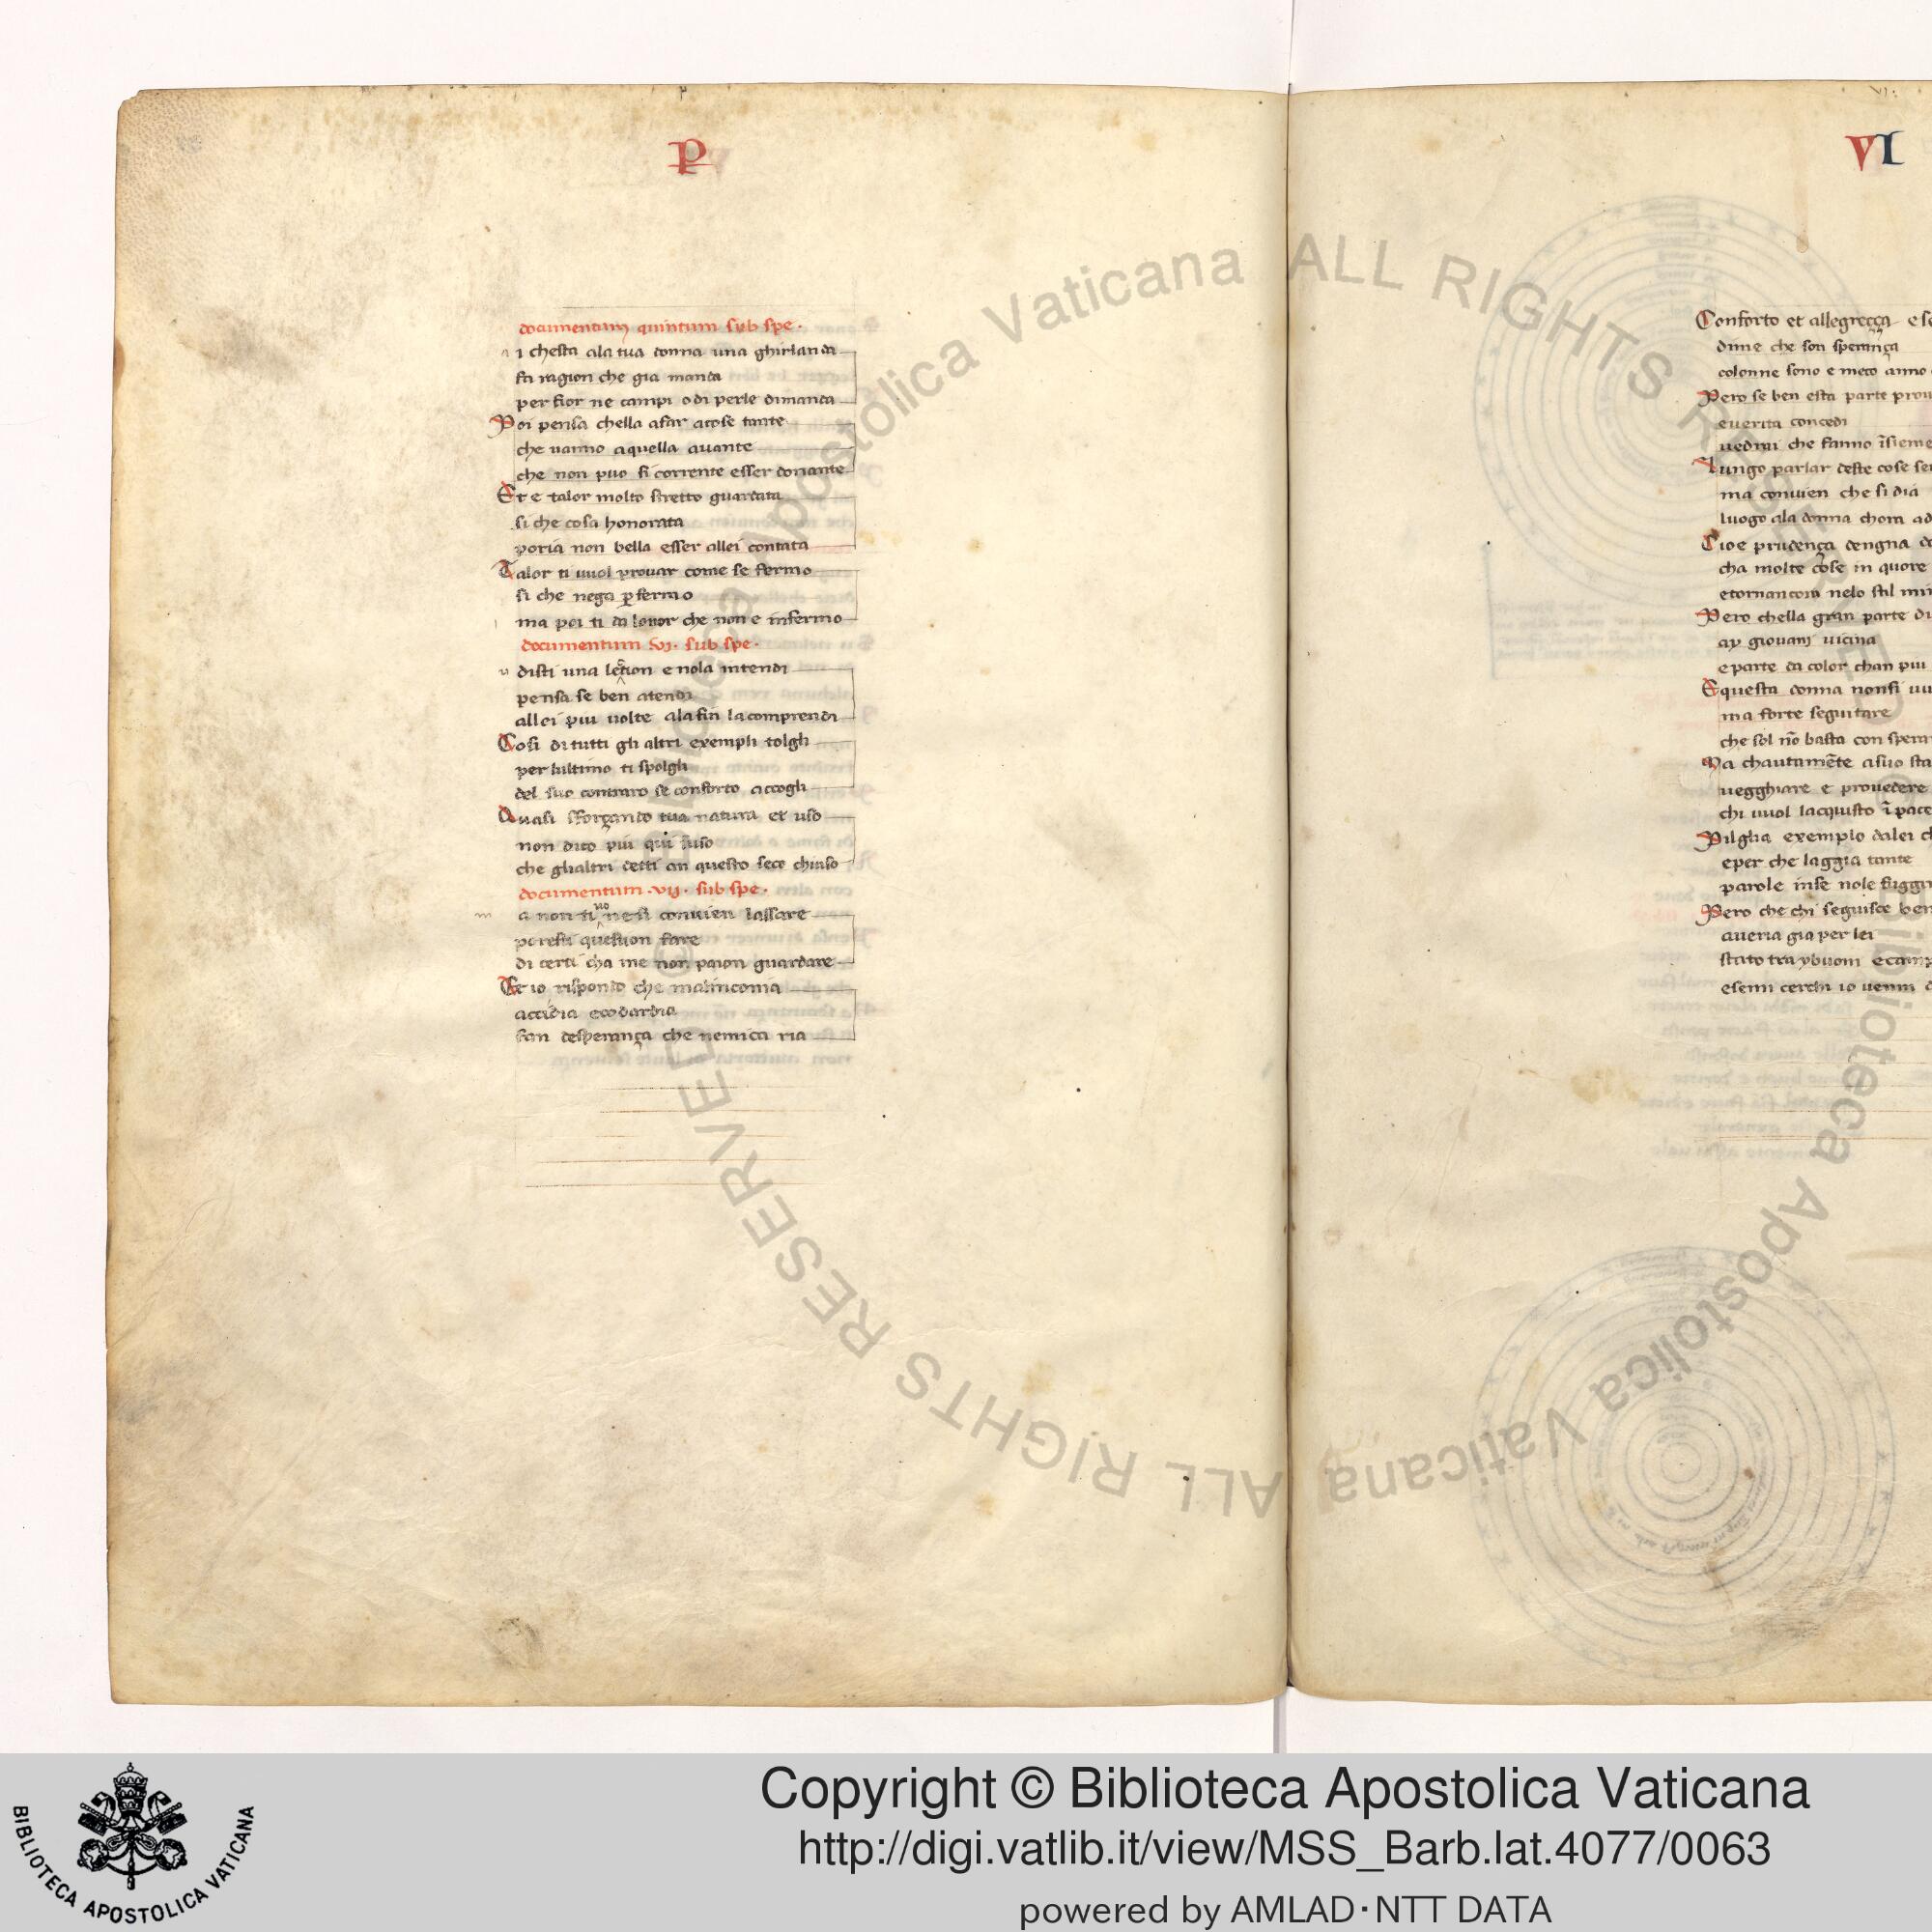 P
documentum quintum sub spe.
i chesta ala tua donna una ghirlanda
fa ragion che gia manda
per fior ne campi o di perle dimanda
Poi pensa chella afar acose tante
che vanno aquella avante
che non puo si corrente esser donante
Et e talor molto stretto guardata
si che cosa honorata
poria non bella esser allei contata
Talor ti vuol provar come se fermo
si che nega p fermo
ma poi ti da lovor che non e infermo
documentum .vj. sub spe.
u disti una letion e nola intendi
pensa se ben atendi
allei piu volte ala fin la comprendi
Cosi di tutti gli altri exempli tolgli
per lultimo ti spolgli
del suo contraro se conforto accogli
Quasi sforçando tua natura et uso
non dico piu qui suso
che glialtri detti an questo seco chiuso
documentum .vij. sub spe.
m a non ti vo ne si convien lassare
poresti question fare
di certi cha me non paion guardare
Et io rispondo che malinconia
accidia e codardia
fan desperança che nemica ria
VI
Conforto et allegreçça e
dime che son sperança
colonne sono e meco anno
Pero se ben esta parte
e verita concedi
vedrai che fanno isieme
lungo parlar deste cose
ma convien che si dia
luogo ala donna chora
Cioe prudença dengna
cha molte cose in quore
etornancora nelo stil
Pero chella gran parte
ay giovani vicina
e parte da color chan piu
E questa donna nonsi
ma forte seguitare
che sol no basta con
Ma chautamete asuo
vegghiare e provedere
chi vuol lacquisto i pace
Pilglia exemplo dalei
e per che laggia tante
parole inse nole
Pero che chi seguisce ben
averia gia per lei
stato tra ybuoni e
esenni cerchi io venni
ALL RIGHTS RESERVED © Biblioteca Apostolica Vaticana ALL RIGHTS RESERVED © Biblioteca Apostolica Vaticana
BIBLIOTECA APOSTOLICA VATICANA
Copyright © Biblioteca Apostolica Vaticana
http://digi.vatlib.it/view/MSS_Barb.lat.4077/0063
powered by AMLAD·NTT DATA